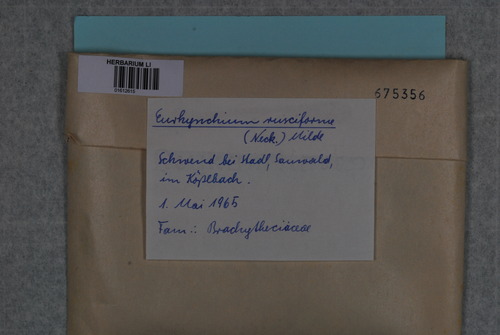 HERBARIUM LI
675356
Eurhynchium rusciforme
(Neck.) Milde
Schwend bei Stadl, Sauwald,
im Kößlbach.
1. Mai 1965
Fam.: Brachytheciaceae